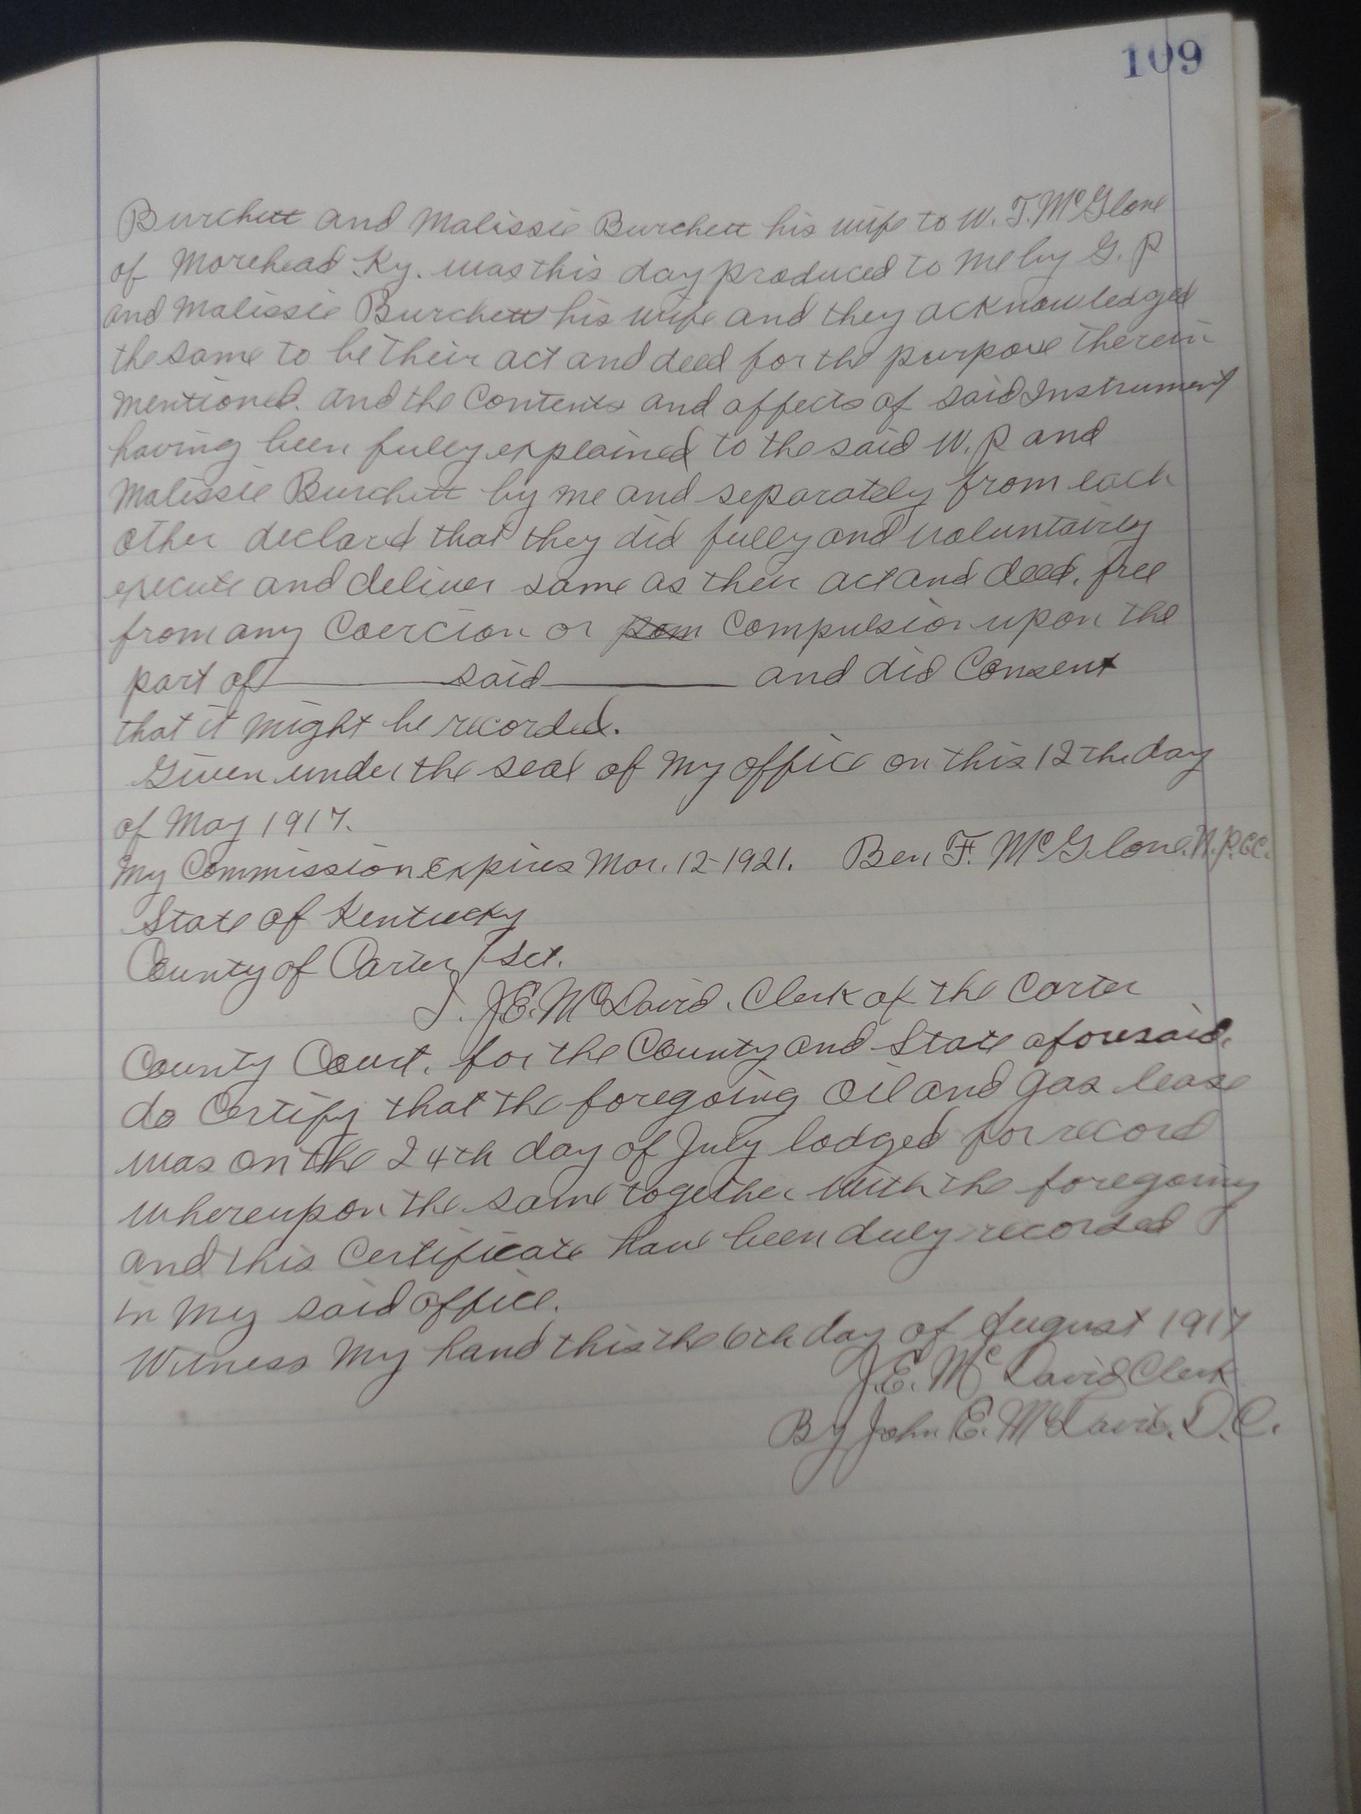 109
Burchett and Malissie Burchett his wife to W. T. McGlone
of Morehead Ky. was this day produced to me by G. P
and Malissie Burchett his wife and they acknowledged
the same to be their act and deed for the purpose therein
mentioned. and the Contents and affects of said Instrument
having been fully explained to the said W. P and
Malissie Burchett by me and separately from each
other declard that they did fully and voluntairly
execute and deliver same as their act and deed, free
from any Coercion or Compulsion upon the
part of said and did Consent
that it might be recorded.
Given under the seal of my office on this 12th day
of May 1917.
My Commission Expires Mar. 12-1921. Ben F. McGlone. N.P.C.C.
State of Kentucky
County of Carter / Sct.
I. J.E. McDavid. Clerk of the Carter
County Court. for the County and State aforesaid.
do Certify that the foregoing Oil and Gas lease
was on the 24th day of July lodged for record
whereupon the same together with the foregoing
and this Certificate have been duly recorded
in my said office.
Witness my hand this the 6th day of August 1917
J.E. McDavid Clerk
By John E. McDavid. D.C.